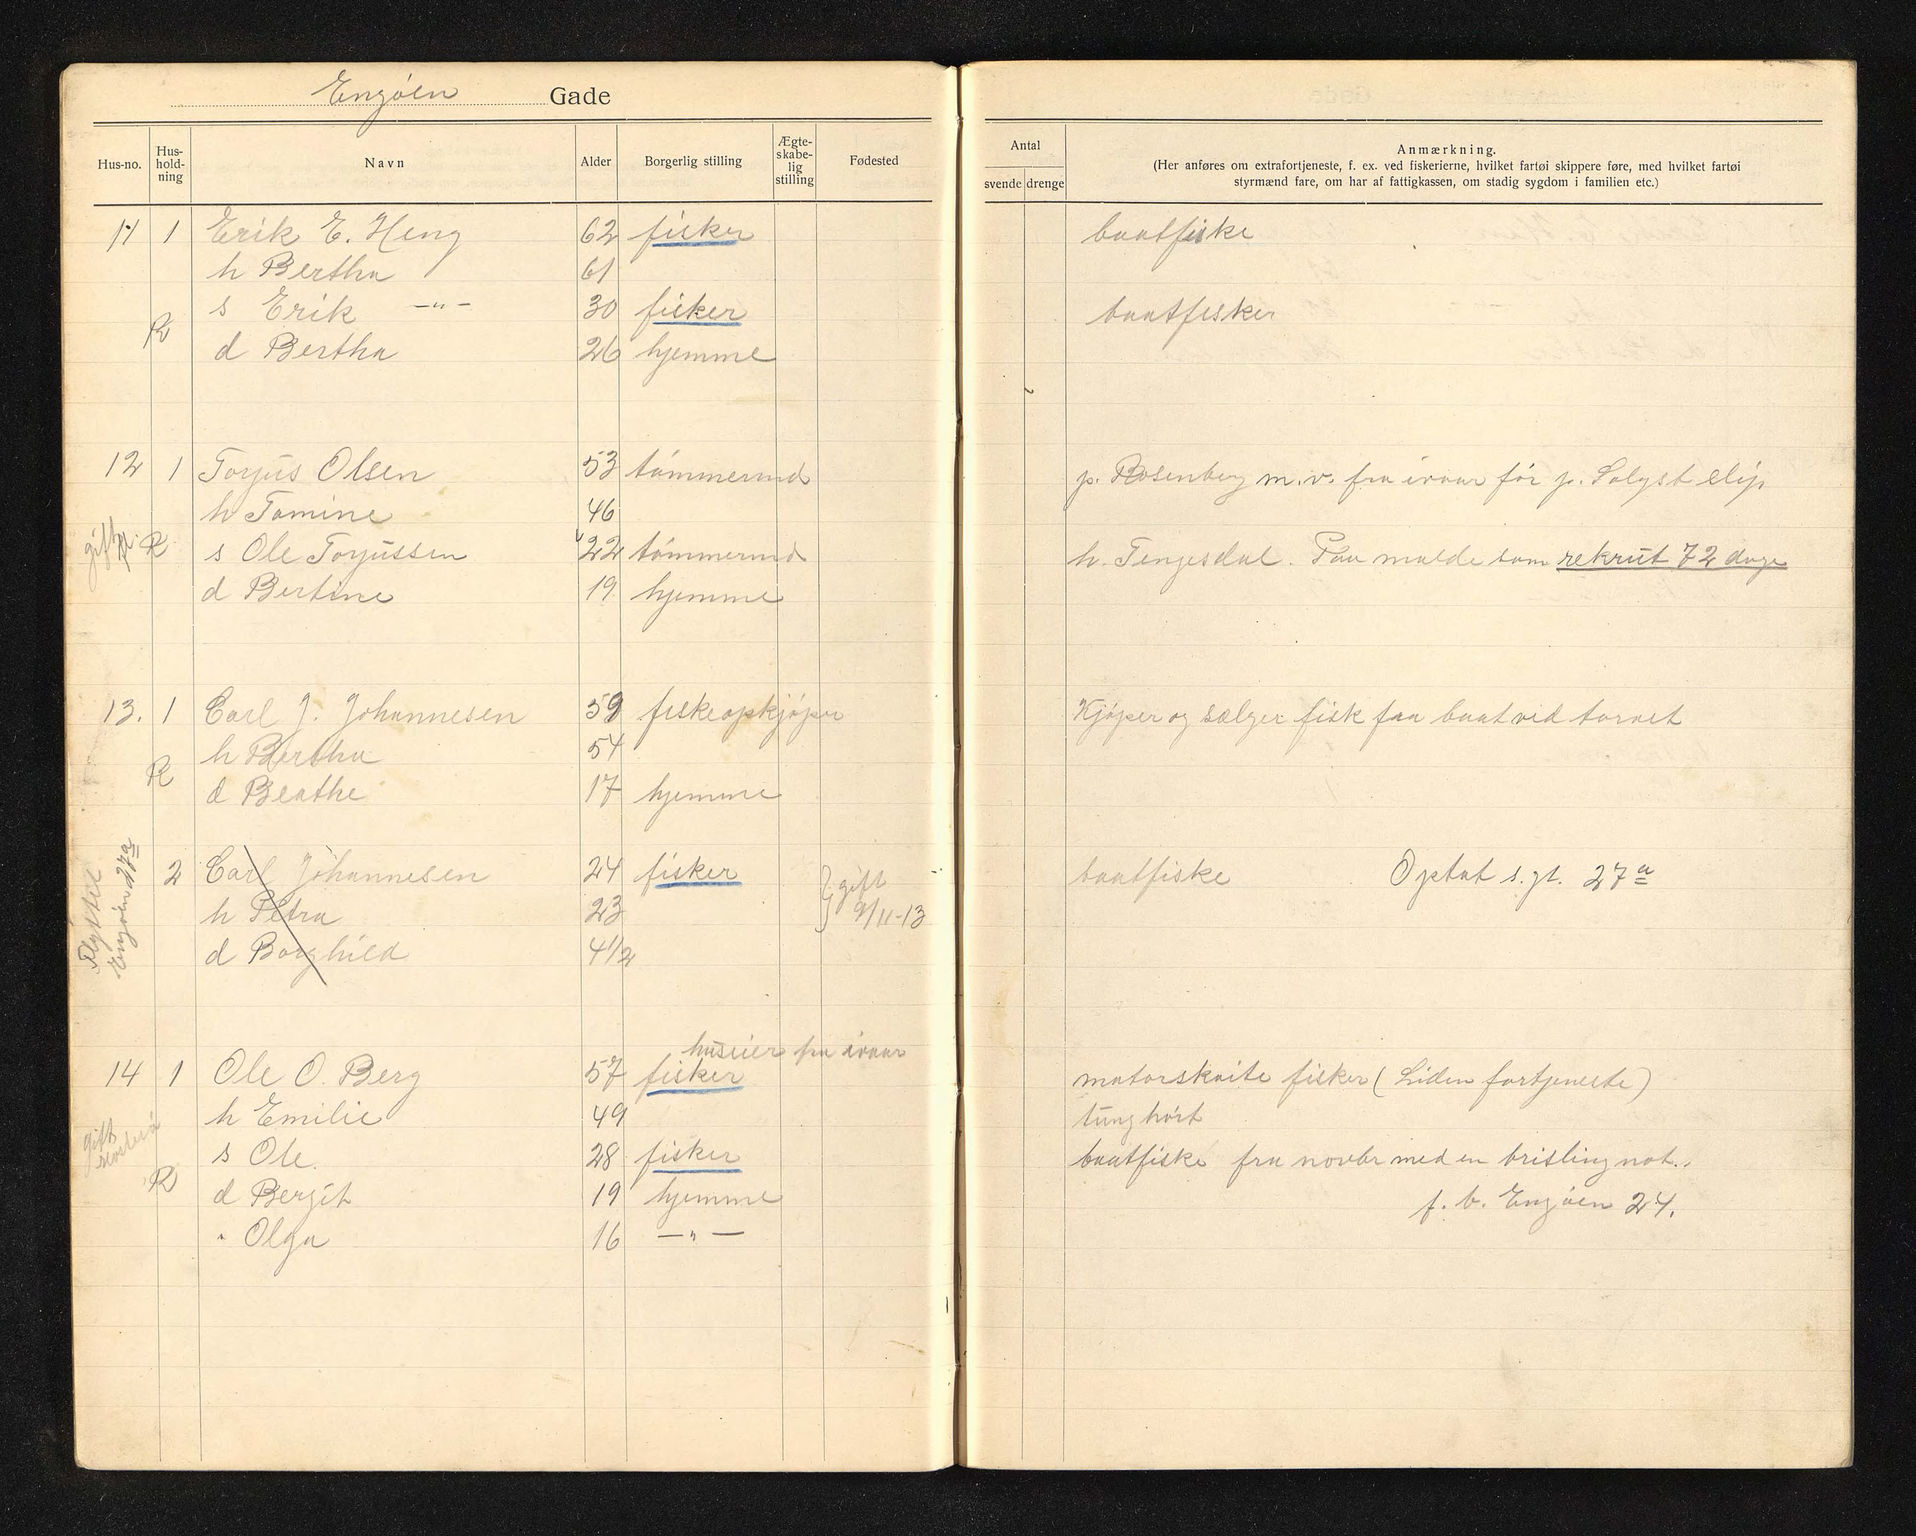 Engøen Gade
Hus-no. Hus-hold-ning Navn Alder Borgerlig stilling Ægte-skabe-lig stilling Fødested
Antal svende drenge
Anmærkning.
(Her anføres om extrafortjeneste, f. ex. ved fiskerierne, hvilket fartøi skippere føre, med hvilket fartøi
styrmænd fare, om har af fattigkassen, om stadig sygdom i familien etc.)
11 1 Erik E. Heng 62 fisker baatfiske
h Bertha 61
s Erik —"— 30 fisker baatfisker
R
d Bertha 26 hjemme
12 1 Torjus Olsen 53 tømmermd p. Rosenberg m.v. fra ivaar før p. Solyst slip
h Tomine 46
gift R
s Ole Torjussen 22 tømmermd h. Tengesdal. Paa malde som rekrut 72 dage
d Bertine 19 hjemme
13. 1 Carl J. Johannesen 59 fiskeopkjøper Kjøper og sælger fisk faa baat ved torvet
h Bertha 54
R
d Beathe 17 hjemme
Flyttet Engøen 27a
2 Carl Johannesen 24 fisker } gift baatfiske Optat s. pl. 27a
h Petra 23 9/11-13
d Borghild 4 1/2
huseier fra ivaar
14 1 Ole O. Berg 57 fisker motorskøite fisker (Liden fortjeneste)
h Emilie 49 tunghørt
gift
s Ole. 28 fisker baatfiske fra novbr med en brislingnot.
R
d Bergit 19 hjemme f. b. Engøen 24.
" Olga 16 —"—